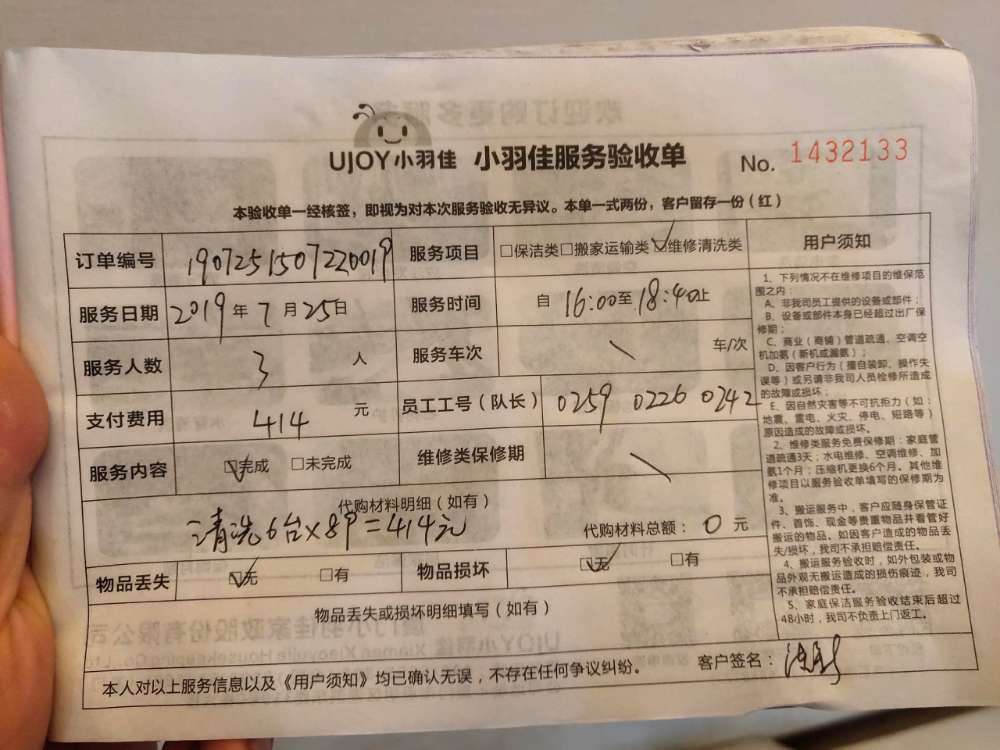 UJOY小羽佳 小羽佳服务验收单 No. 1432133
本验收单一经核签，即视为对本次服务验收无异议。本单一式两份，客户留存一份（红）
订单编号 1907251507220019 服务项目 □保洁类□搬家运输类☑维修清洗类
服务日期 2019年7月25日 服务时间 自16:00至18:40止
服务人数 3 人 服务车次 \ 车/次
支付费用 414 元 员工工号（队长） 0259 0226 0242
服务内容 ☑完成 □未完成 维修类保修期 \
代购材料明细（如有）
清洗6台×89=414元 代购材料总额：0元
物品丢失 ☑无 □有 物品损坏 ☑无 □有
物品丢失或损坏明细填写（如有）
本人对以上服务信息以及《用户须知》均已确认无误，不存在任何争议纠纷。 客户签名：
用户须知
1、下列情况不在维修项目的维保范
围之内：
A、非我司员工提供的设备或部件；
B、设备或部件本身已经超过出厂保
修期；
C、商业（商铺）管道疏通、空调空
机加氨（新机或漏氨）；
D、因客户行为（擅自装卸、操作失
误等）或另请非我司人员检修所造成
的故障或损坏；
E、因自然灾害等不可抗拒力（如：
地震、雷电、火灾、停电、短路等）
原因造成的故障或损坏。
2、维修类服务免费保修期：家庭管
道疏通3天；水电维修、空调维修、加
氨1个月；压缩机更换6个月。其他维
修项目以服务验收单填写的保修期为
准。
3、搬运服务中，客户应随身保管证
件、首饰、现金等贵重物品并看管好
搬运的物品。如因客户造成的物品丢
失/损坏，我司不承担赔偿责任。
4、搬运服务验收时，如外包装或物
品外观无搬运造成的损伤痕迹，我司
不承担赔偿责任。
5、家庭保洁服务验收结束后超过
48小时，我司不负责上门返工。